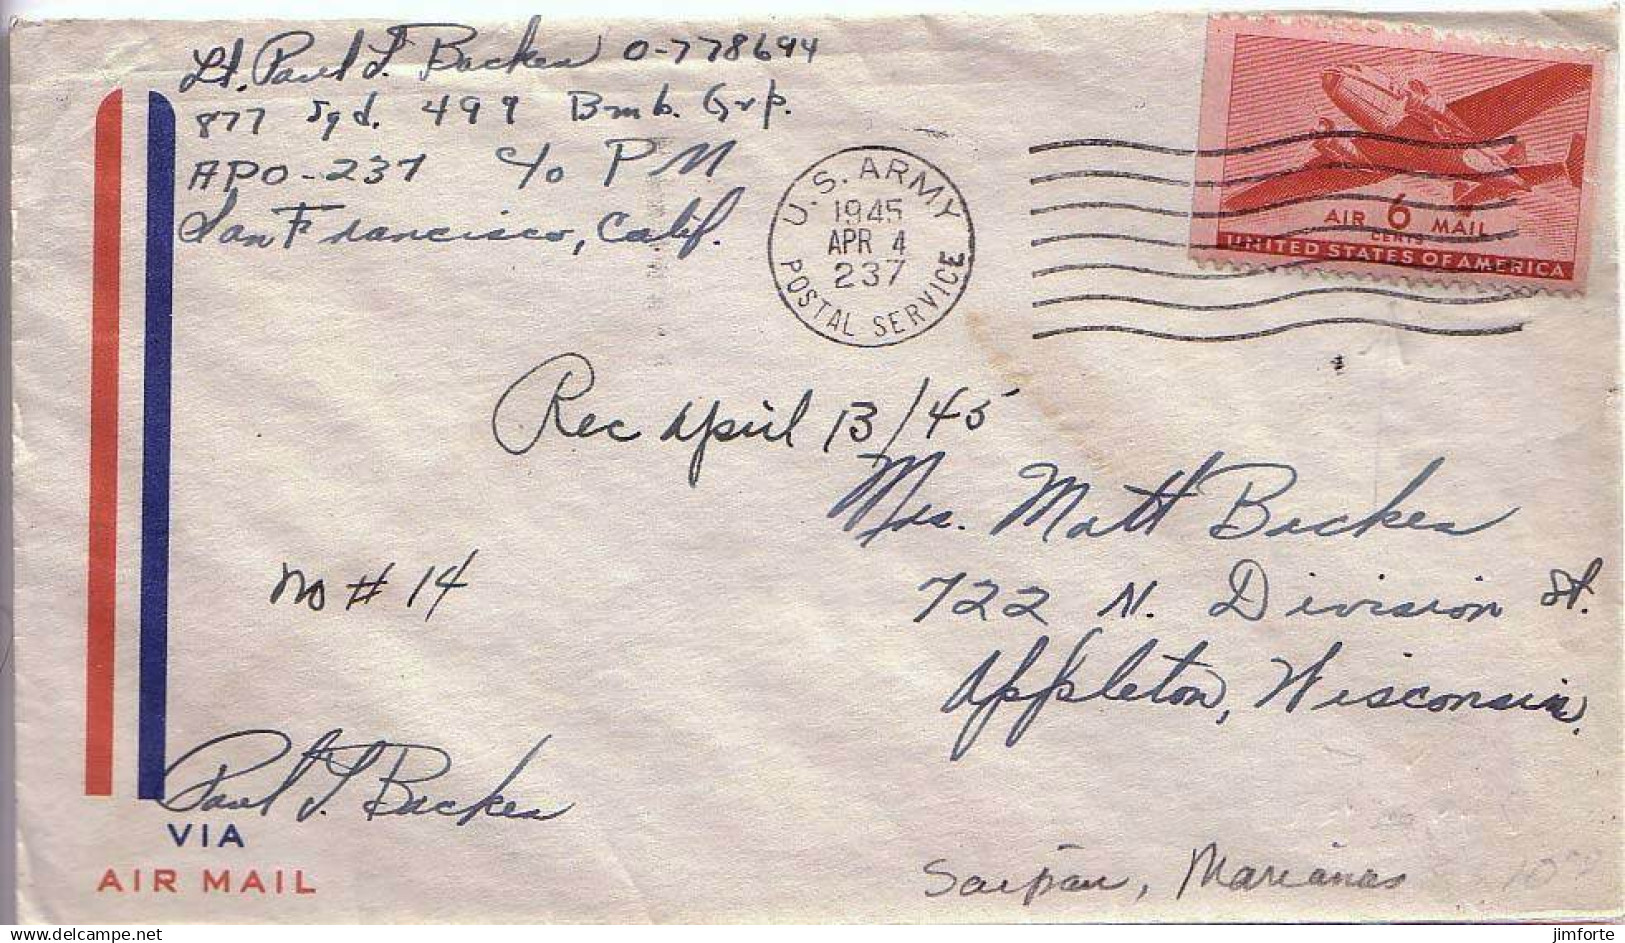 Lt. Paul T. Backes O-778694
877 Sqd. 499 Bmb. Grp.
APO-237 c/o PM
San Francisco, Calif.
U.S. ARMY
1945
APR 4
237
POSTAL SERVICE
AIR 6 MAIL
CENTS
UNITED STATES OF AMERICA
Rec April 13/45
Mrs. Matt Backes
722 N. Division St.
Appleton, Wisconsin.
No # 14
Paul T. Backes
VIA
AIR MAIL
Saipan, Marianas
delcampe.net
jimforte